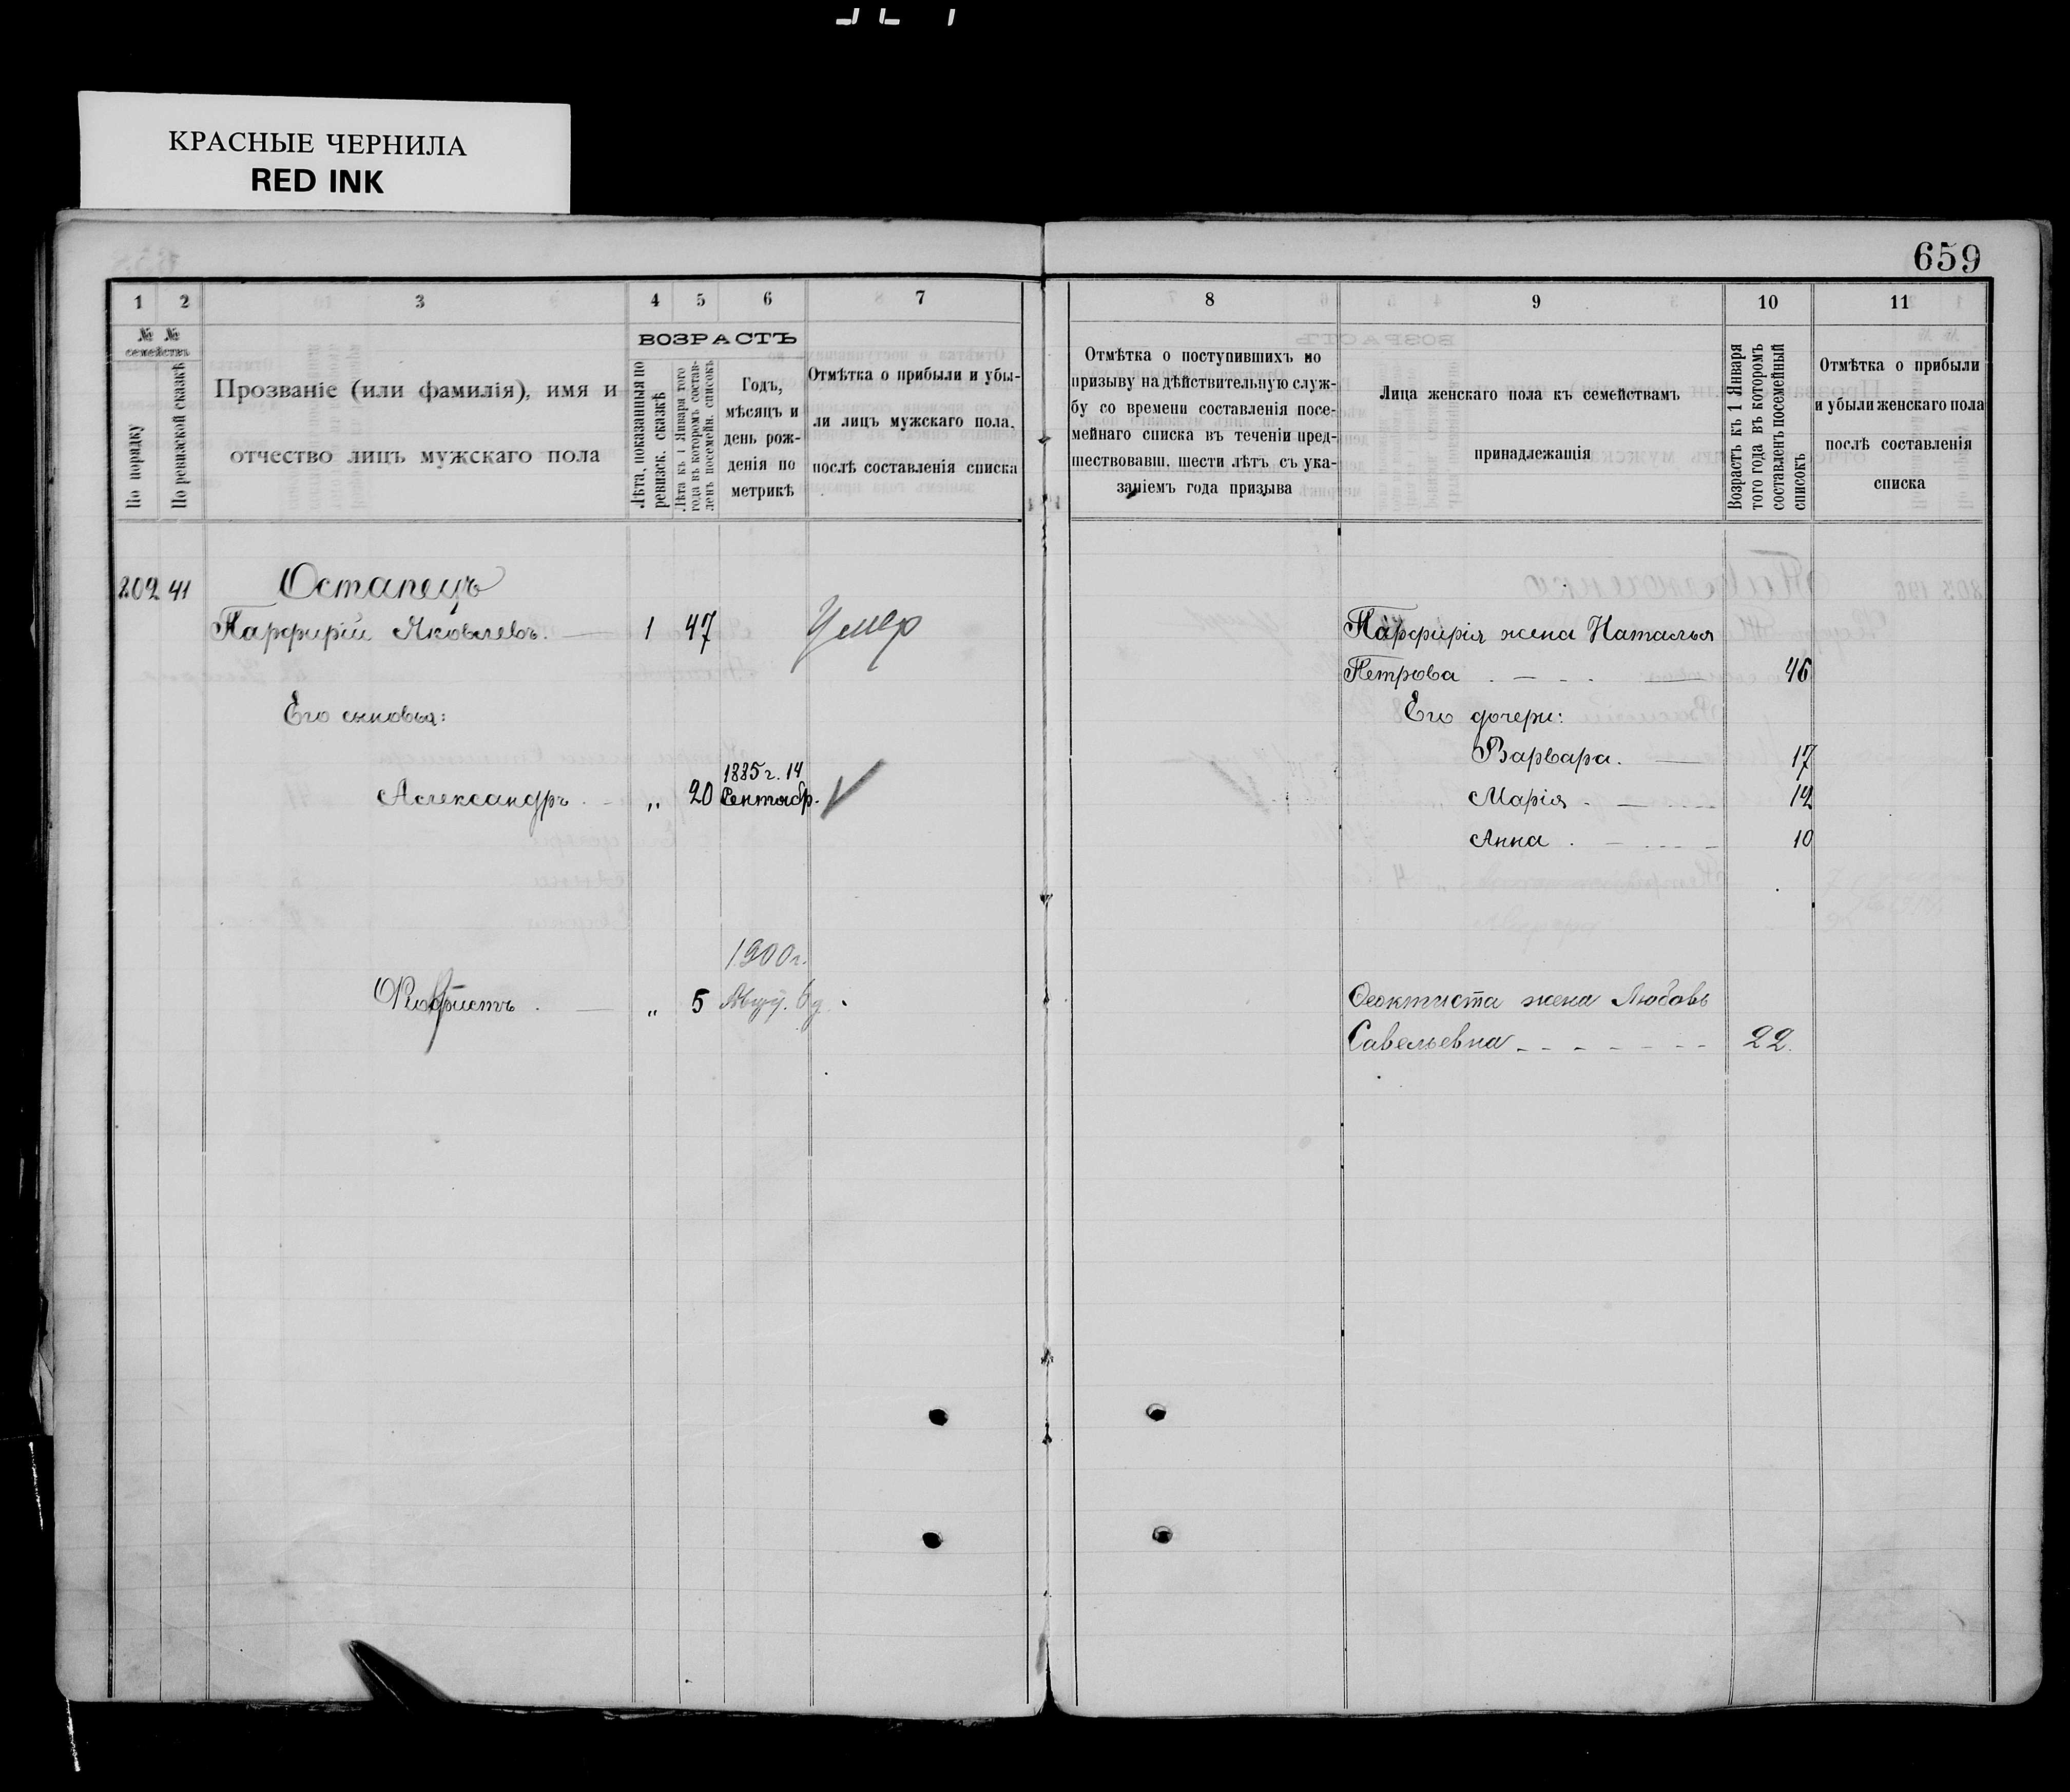 КРАСНЫЕ ЧЕРНИЛА
RED INK
659
1 2 3 4 5 6 7
№ №
семействъ
По порядку
По ревизской сказкѣ
Прозваніе (или фамилія), имя и
отчество лицъ мужскаго пола
ВОЗРАСТЪ
Лѣта, показанныя по
ревизск. сказкѣ
Лѣта къ 1 Января того
года въ которомъ состав-
ленъ посемейн. списокъ
Годъ,
мѣсяцъ и
день рож-
денія по
метрикѣ
Отмѣтка о прибыли и убы-
ли лицъ мужскаго пола,
послѣ составленія списка
8 9 10 11
Отмѣтка о поступившихъ по
призыву на дѣйствительную служ-
бу со времени составленія посе-
мейнаго списка въ теченіи пред-
шествовавш. шести лѣтъ съ ука-
заніемъ года призыва
Лица женскаго пола къ семействамъ
принадлежащія
Возрастъ къ 1 Января
того года въ которомъ
составленъ посемейный
списокъ
Отмѣтка о прибыли
и убыли женскаго пола
послѣ составленія
списка
209 41 Остапецъ
Парфирій Яковлевъ. 1 47 Умер
Его сыновья:
1885 г. 14
Александръ „ 20 Сентябр.
1900 г.
„ 5
Парфирія жена Наталья
Петрова 46
Его дочери:
Варвара. 17
Марія 12
Анна 10
Феоктиста жена Любовь
Савельевна 22.